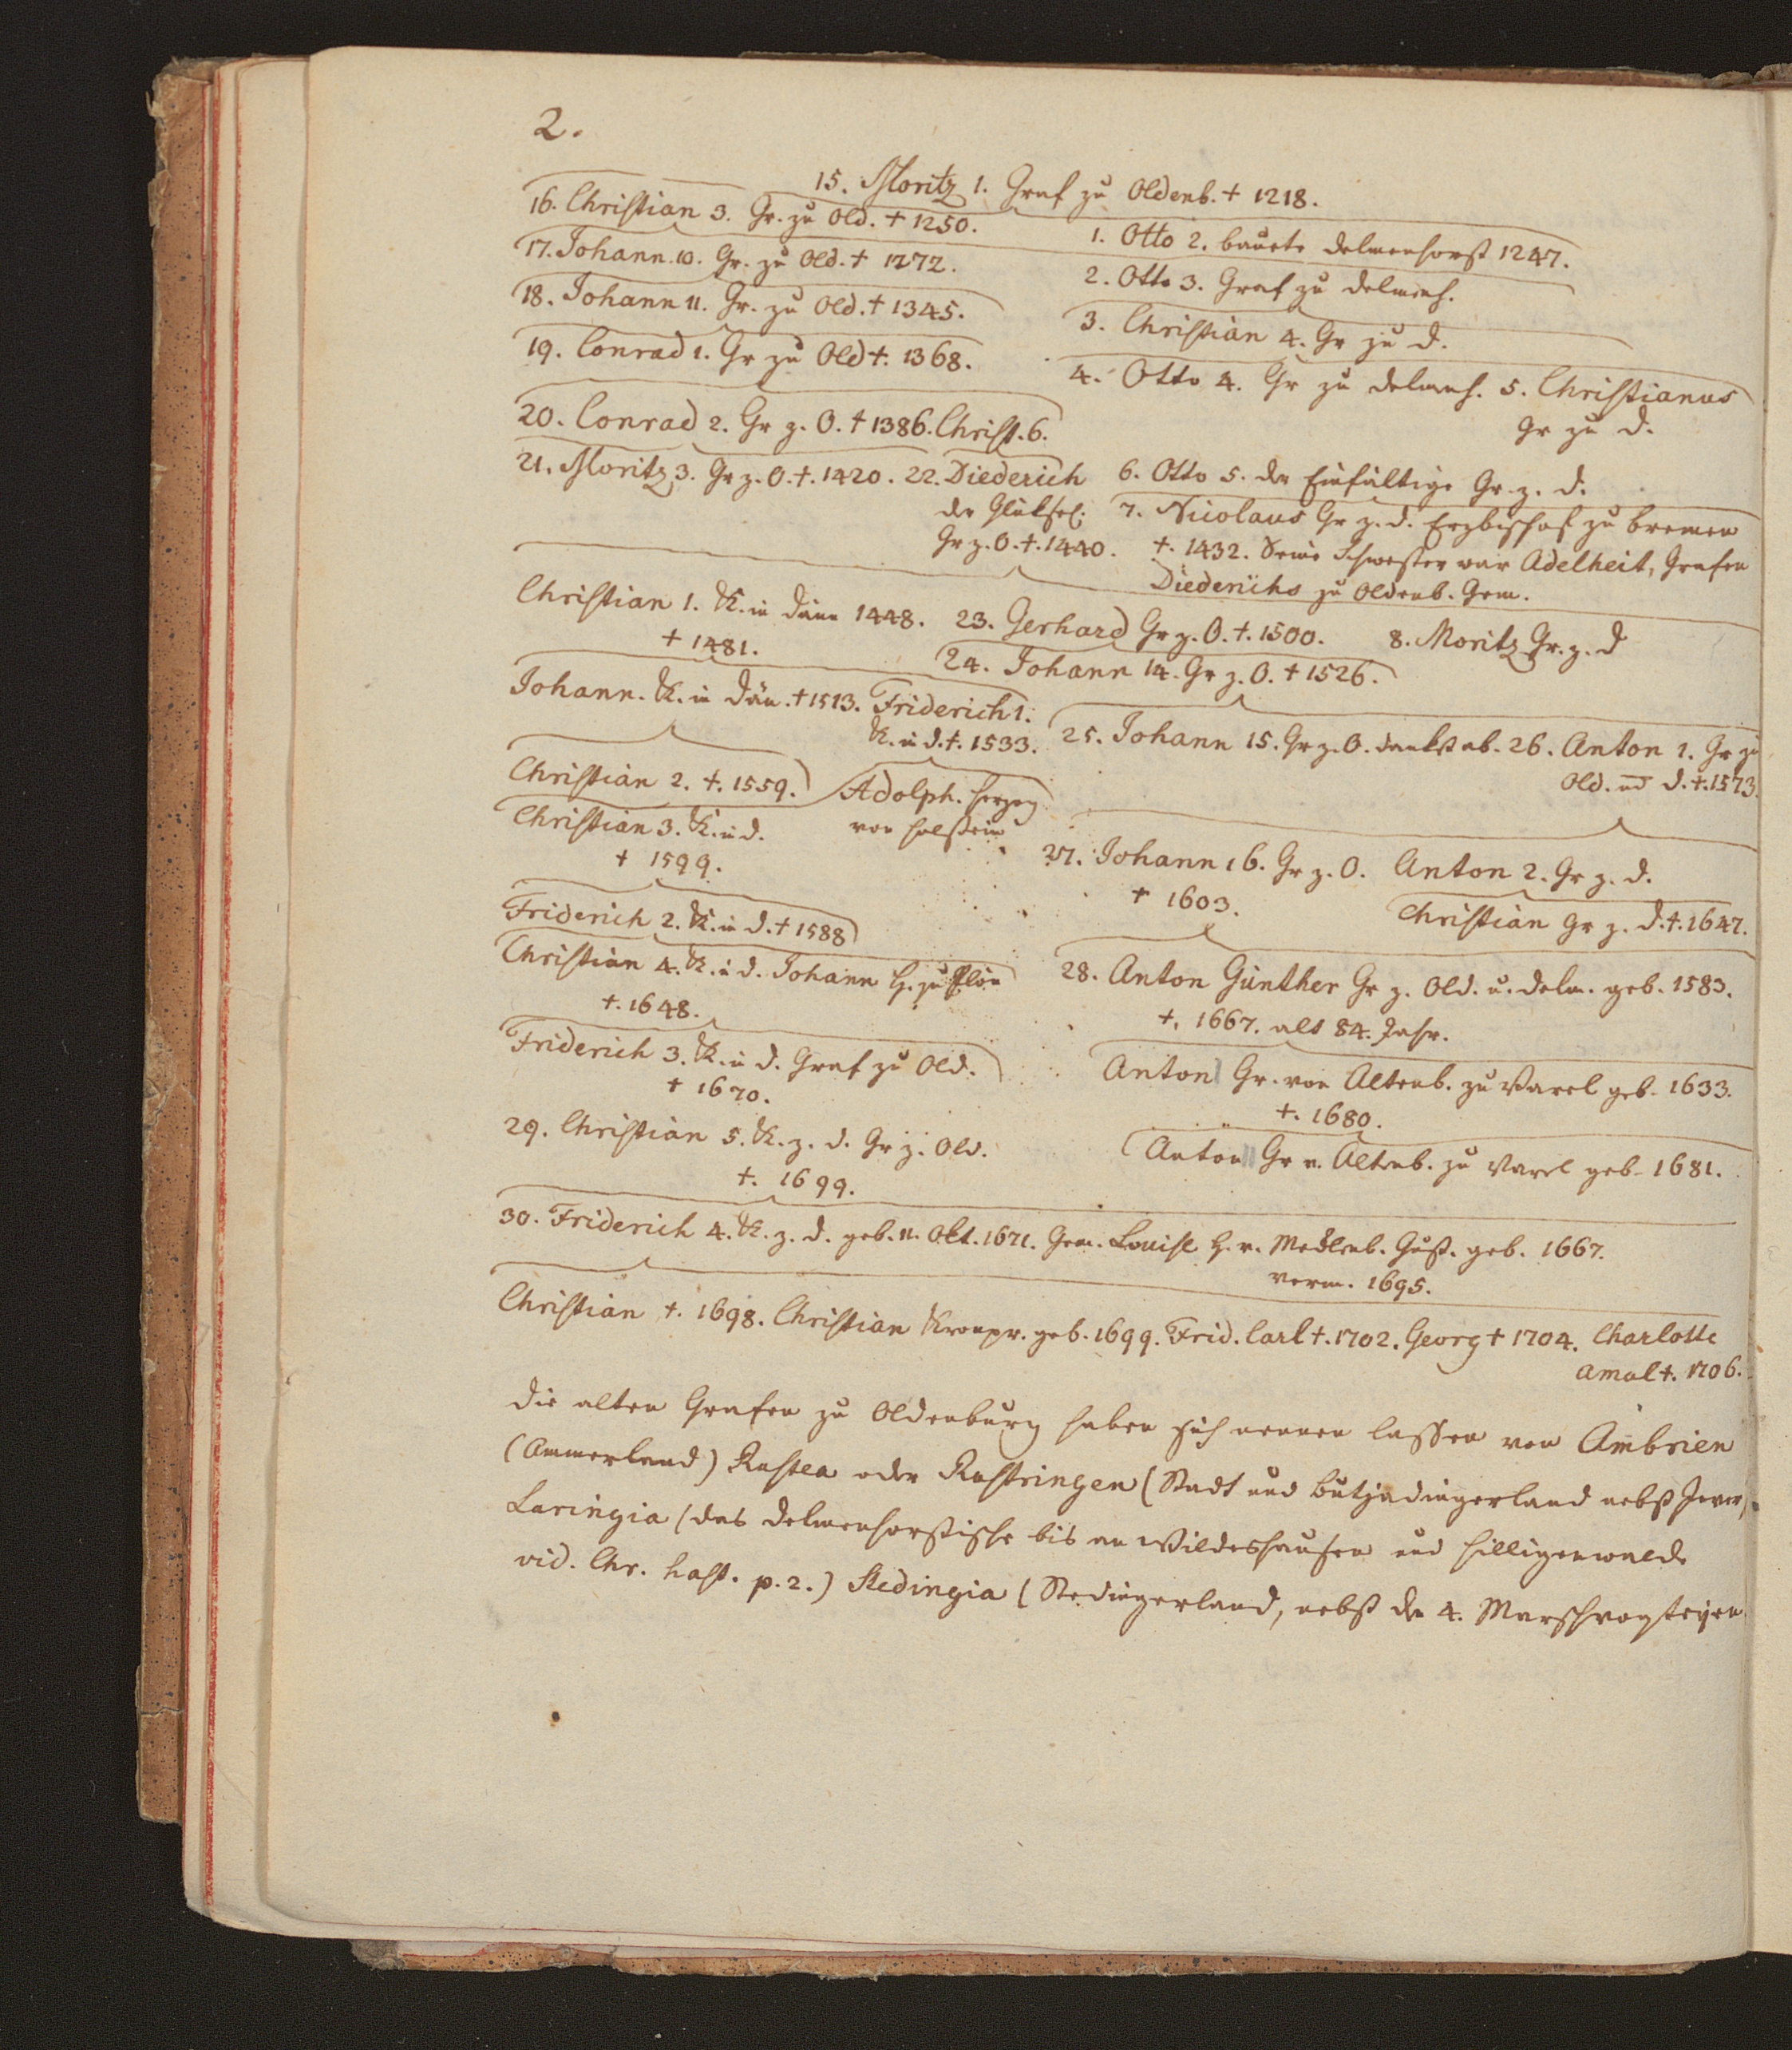 2.
15. Moritz 1. Graf zu Oldenb. + 1218.
16. Christian 3. Gr. zu Old. + 1250.
1. Otto 2. bauete Delmenhorst 1247.
17. Johann. 10. Gr. zu Old. + 1272.
2. Otto 3. Graf zu Delmenh.
18. Johann 11. Gr. zu Old. + 1345.
3. Christian 4. Gr zu D.
19. Conrad 1. Gr zu Old +. 1368.
4. Otto 4. Gr zu Delmenh. 5. Christianus
Gr zu D.
20. Conrad 2. Gr z. O. + 1386. Christ. 6.
21. Moritz 3. Gr z. O. +. 1420. 22. Diederich
der Glüksel.
Gr z. O. +. 1440.
6. Otto 5. der Einfältige Gr. z. D.
7. Nicolaus Gr z. D. Erzbischof zu Bremen
+. 1432. Seine Schwester war Adelheit, Grafen
Diederichs zu Oldenb. Gem.
Christian 1. K. in Dänn 1448.
+ 1481.
23. Gerhard Gr z. O. +. 1500.
8. Moritz Gr. z. D
24. Johann 14. Gr z. O. + 1526.
Johann. K. in Dän. + 1513. Friderich 1.
K. in D. +. 1533.
25. Johann 15. Gr z. O. dankt ab. 26. Anton 1. Gr zu
Old. und D. +. 1573.
Christian 2. +. 1559.
Adolph. Herzog
von Holstein
Christian 3. K. in D.
+ 1599.
27. Johann 16. Gr z. O.
+ 1603.
Anton 2. Gr z. D.
Christian Gr z. D. +. 1647.
Friderich 2. K. in D. + 1588
Christian 4. K. in D. Johann H. zu Plön
+. 1648.
28. Anton Günther Gr z. Old. u. Delm. geb. 1583.
+. 1667. alt 84. Jahr.
Friderich 3. K. in D. Graf zu Old.
+ 1670.
Anton Gr. von Altenb. zu Varel geb. 1633.
+. 1680.
29. Christian 5. K. z. D. Gr z. Old.
+. 1699.
Anton Gr v. Altenb. zu Varel geb. 1681.
30. Friderich 4. K. z. D. geb. 11. Okt. 1671. Gem. Louise H. v. Meckl. Güst. geb. 1667.
verm. 1695.
Christian +. 1698. Christian Kronpr. geb. 1699. Frid. Carl +. 1702. Georg + 1704. Charlotte
Amal +. 1706.
Die alten Grafen zu Oldenburg haben sich nennen lassen von Ambrien
(Ammerland) Rustea oder Rustringen (Stadt und Butjadingerland nebst Jever,
Laringia (das Delmenhorstische bis an Wildeshausen und Hilligenwalde
vid. Chr. p. 2.) Stedingia (Stedingerland, nebst den 4. Marschvogteyen